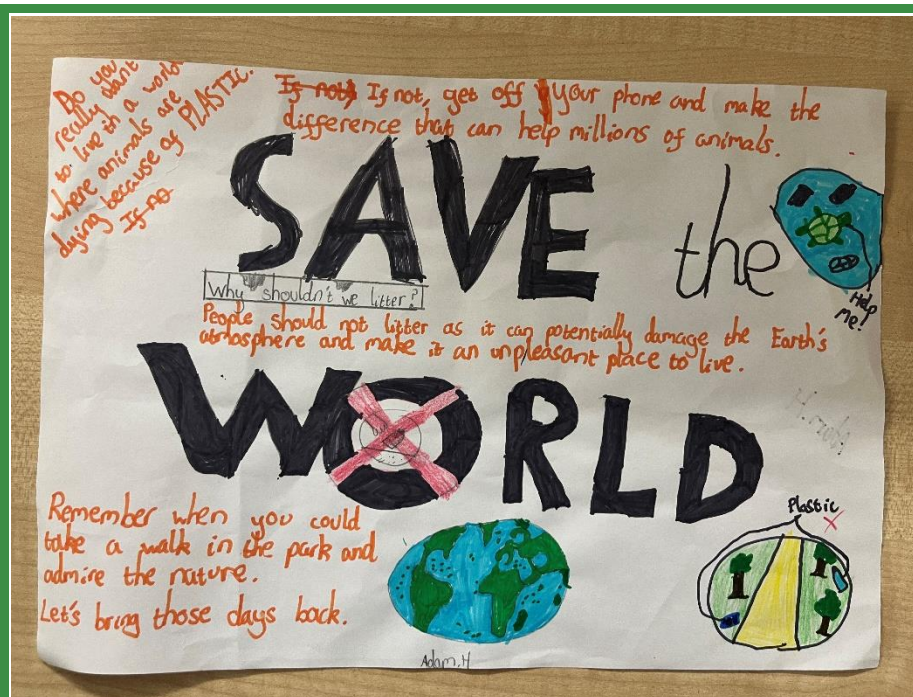 Do you
really want
to live in a world
where animals are
dying because of PLASTIC.
If no
If not, If not, get off your phone and make the
difference that can help millions of animals.
SAVE the
Help
Me!
Why shouldn't we litter?
People should not litter as it can potentially damage the Earth's
atmosphere and make it an unpleasant place to live.
WORLD
Remember when you could
take a walk in the park and
admire the nature.
Let's bring those days back.
Plastic
Adam.H